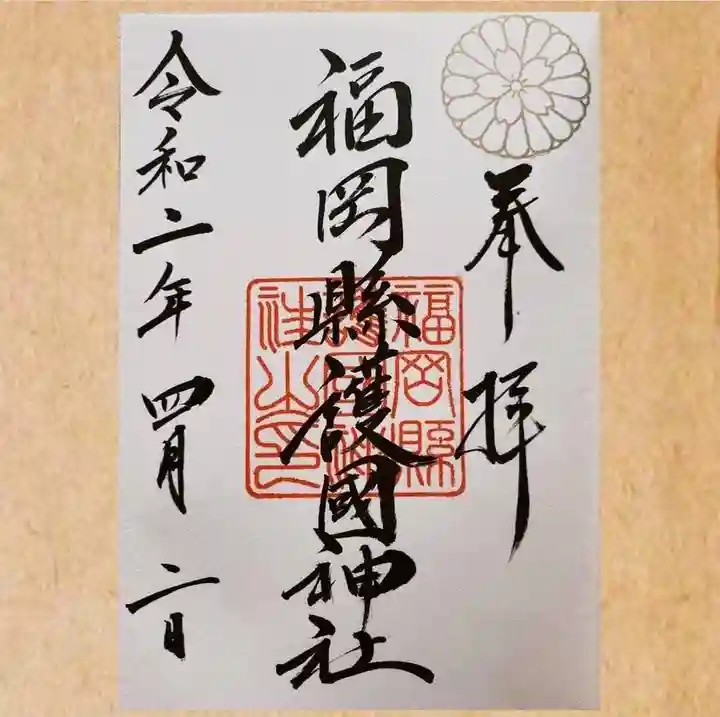 奉拝
福岡縣護國神社
福岡縣護國神社之印
令和二年四月二日